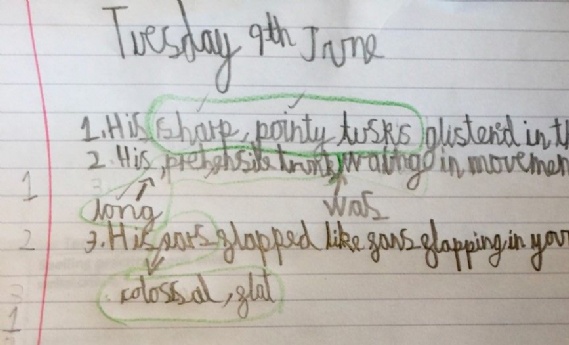 Tuesday 9th June
1. His sharp, pointy tusks glistend in th
2. His, prehensile trunk, waling in movemen
1
long was
2 3. His ears flapped like fans flapping in your
colossal, flat
1